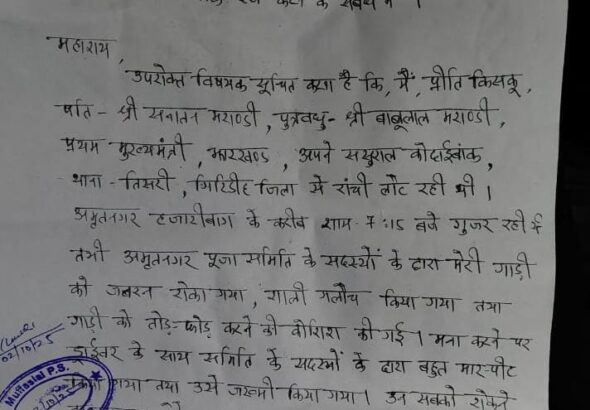 के संबंध में ।
महाशय,
उपरोक्त विषयक सूचित करना है कि, मैं, प्रीति किसकू,
पति - श्री सनातन मराण्डी, पुत्रवधु - श्री बाबूलाल मराण्डी,
प्रथम मुख्यमंत्री, झारखण्ड, अपने ससुराल कोदाईबांक,
थाना - तिसरी, गिरिडीह जिला से रांची लौट रही थी ।
अमृतनगर हजारीबाग के करीब शाम - 7:15 बजे गुजर रही थी
तभी अमृतनगर पूजा समिति के सदस्यों के द्वारा मेरी गाड़ी
को जबरन रोका गया, गाली गलौच किया गया तथा
गाड़ी को तोड़-फोड़ करने की कोशिश की गई । मना करने पर
02/10/25
ड्राईवर के साथ समिति के सदस्यों के द्वारा बहुत मार-पीट
Muffasial P.S.
किया गया तथा उसे जख्मी किया गया । उन सबको रोकने